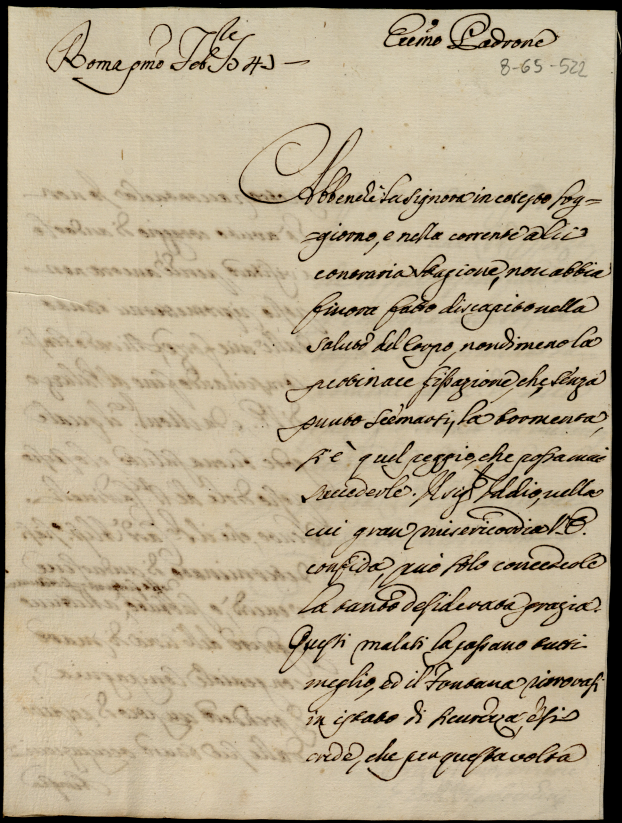 Ecc.mo Padrone
Roma pmo Feb.
8-65-522
Abbenchè la Signora in cotesto sog=
=giorno, e nella corrente a lei
contraria stagione, non abbia
finora fatto discapito nella
salute del Corpo, nondimeno la
pertinace fissazione, che senza
punto scemarsi, la tormenta,
si è quel peggio, che possa mai
succederle. Il Sig.r Iddio, nella
cui gran misericordia V.E.
confida, può solo concederle
la tanto desiderata grazia.
Questi malati la passano tutti
meglio, ed il Fontana ritrovasi
in istato di sicurezza, e si
crede, che per questa volta